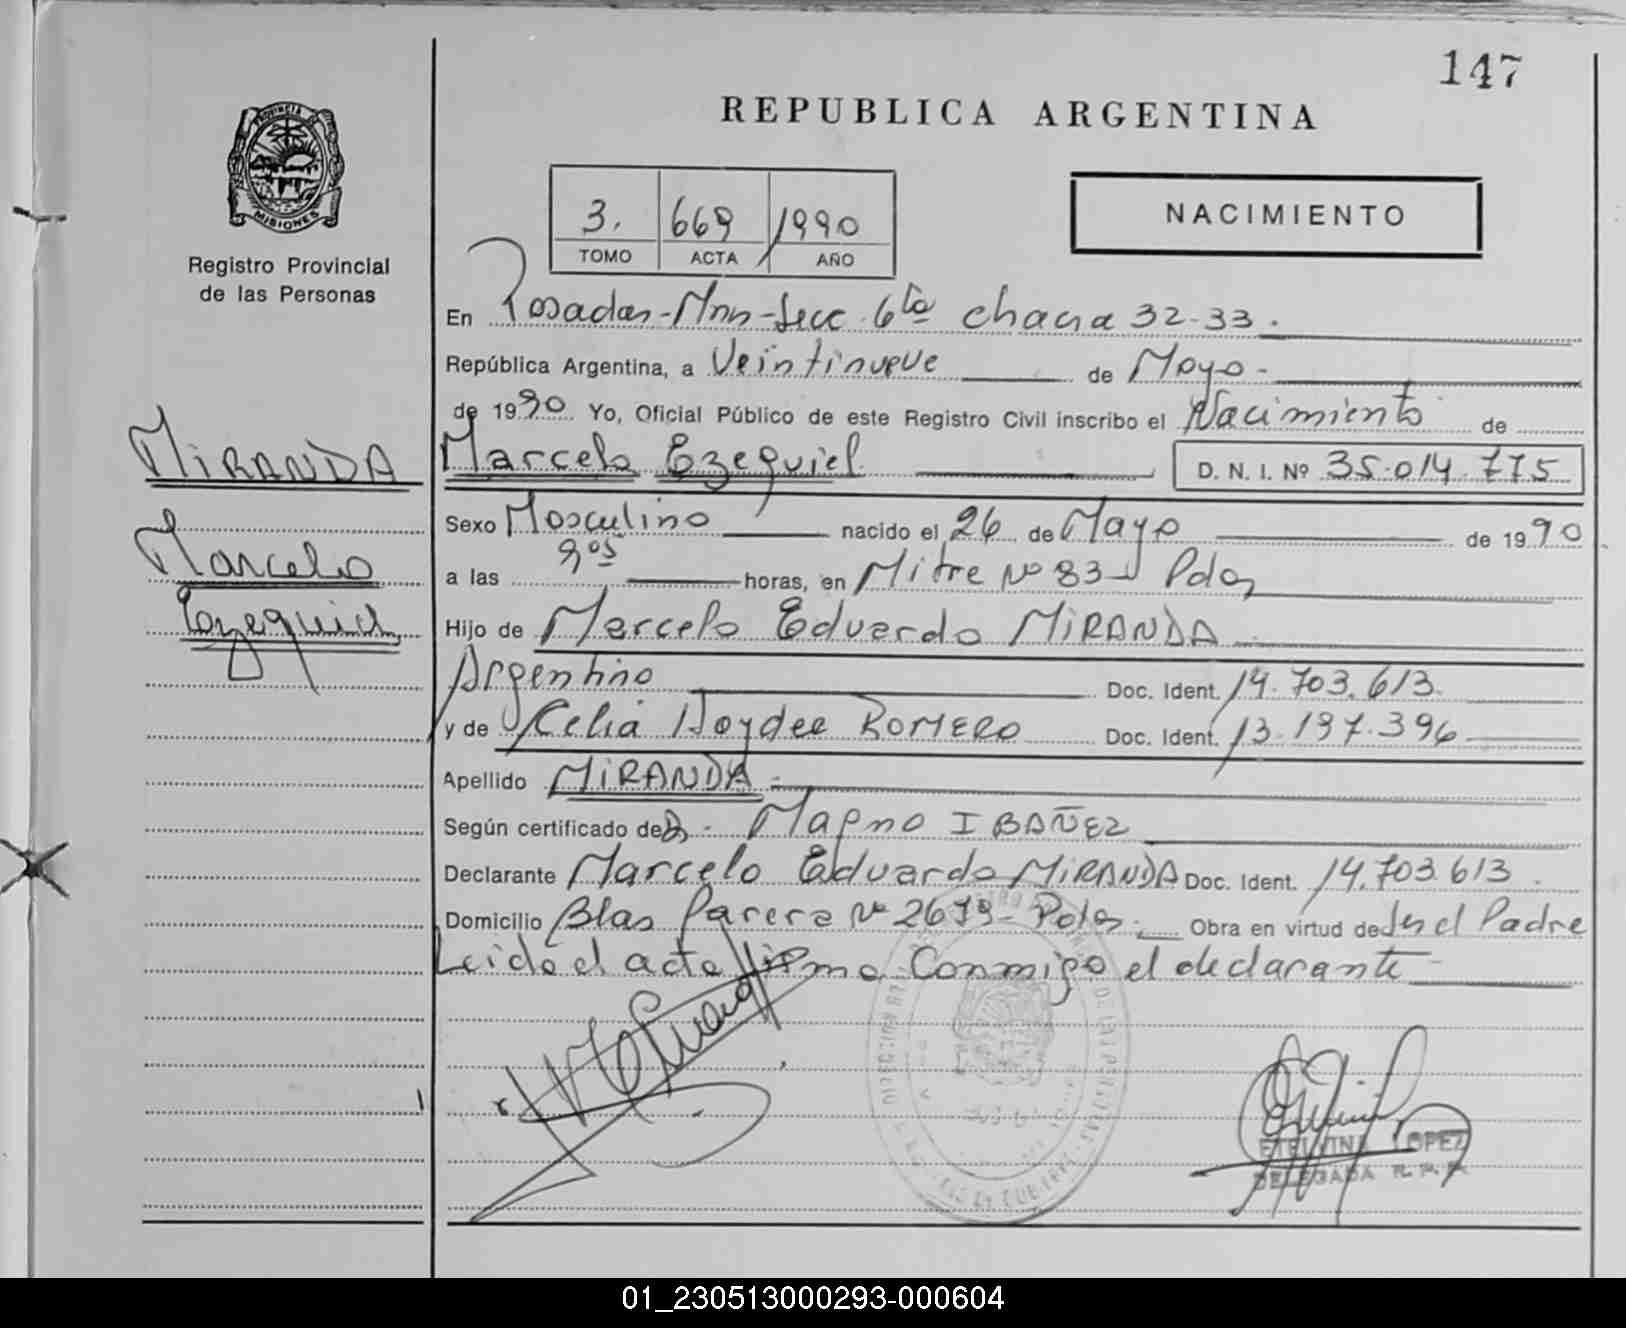 147
REPUBLICA ARGENTINA
PROVINCIA DE
MISIONES
Registro Provincial
de las Personas
3. 669 1990
TOMO ACTA AÑO
NACIMIENTO
En Posadas-Mnes-Secc 6ta chacra 32-33.
República Argentina, a Veintinueve de Mayo-
de 1990 Yo, Oficial Público de este Registro Civil inscribo el Nacimiento de
MIRANDA
Marcelo Ezequiel D. N. I. Nº 35.014.775
Marcelo
Ezequiel
Sexo Masculino nacido el 26 de Mayo de 1990
a las 9,05 horas, en Mitre Nº 83 Pdas
Hijo de Marcelo Eduardo MIRANDA
Argentino Doc. Ident. 14.703.613.
y de Celia Haydee ROMERO Doc. Ident. 13.197.396
Apellido MIRANDA-
Según certificado de Magno IBAÑEZ
Declarante Marcelo Eduardo MIRANDA Doc. Ident. 14.703.613.
Domicilio Blas Parera Nº 2679-Pdas. Obra en virtud de ser el Padre
Leido el acta firma Conmigo el declarante-
ETELVINA LOPEZ
DELEGADA R. P. P.
01_230513000293-000604